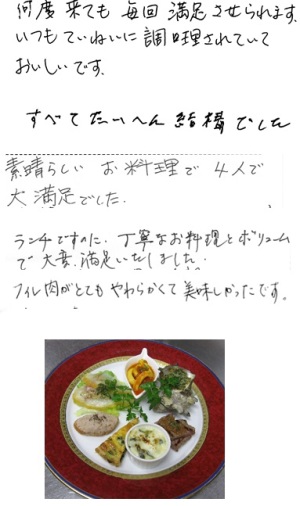 何度来ても毎回満足させられます。
いつもていねいに調理されていて
おいしいです。
すべてたいへん結構でした
素晴らしいお料理で4人で
大満足でした.
ランチですのに、丁寧なお料理とボリューム
で大変満足いたしました.
フィレ肉がとてもやわらかくて美味しかったです。